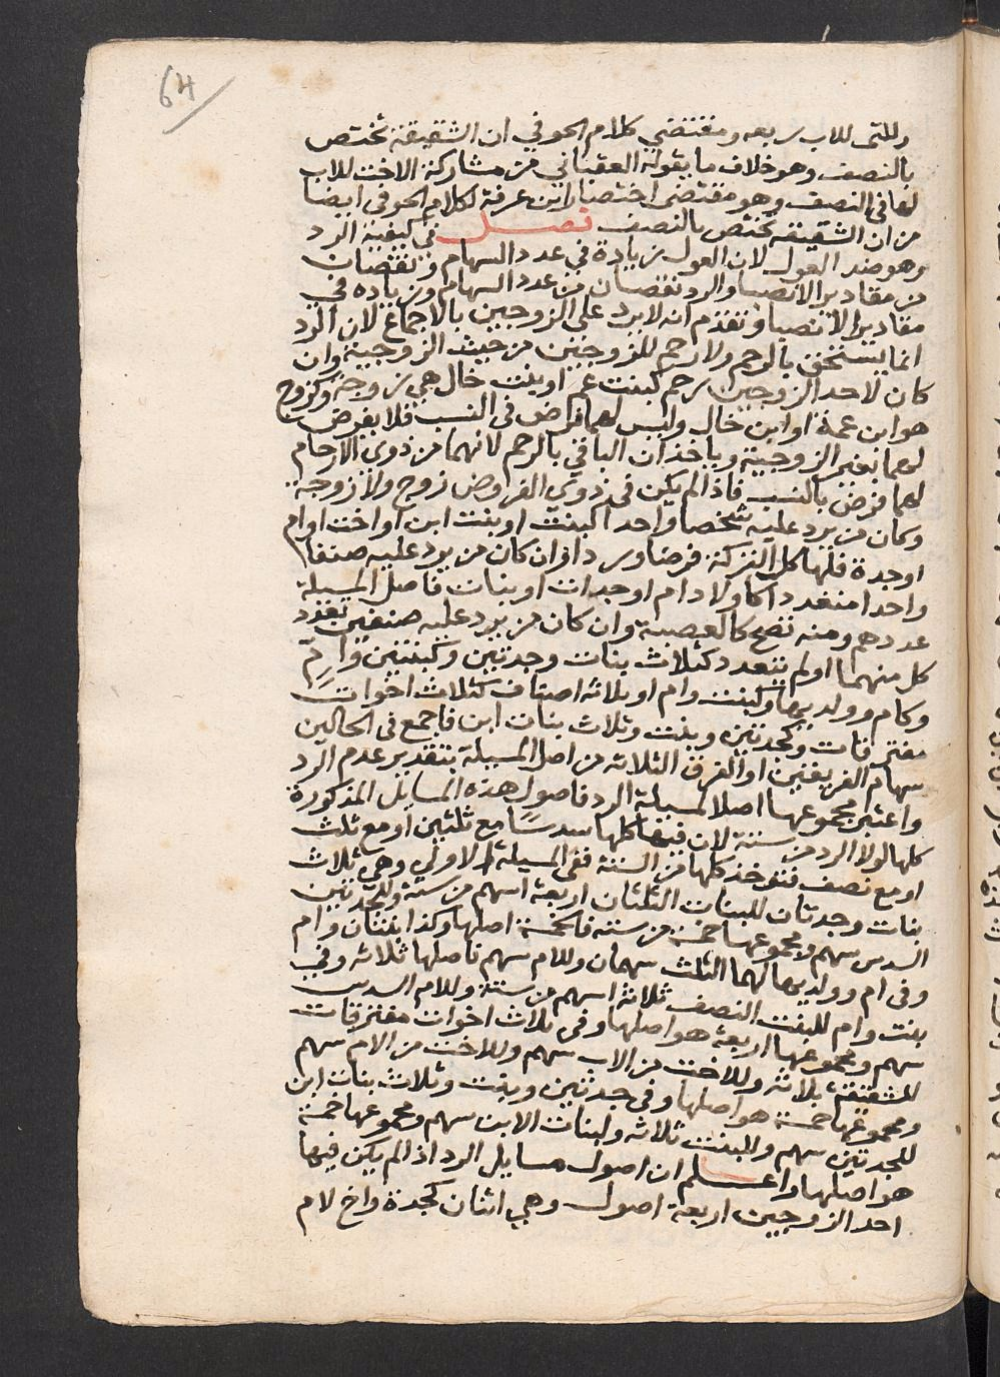 64
وللتى للاب ربعه ومقتضى كلام الحوفي ان الشقيقة تختص
بالنصف وهو خلاف ما يقوله العقباني من مشاركة الاخت للاب
لها في النصف وهو مقتضى اختصار ابن عرفة لكلام الحوفي ايضا
من ان الشقيقة تختص بالنصف فصل في كيفية الرد
وهو ضد العول لان العول زيادة في عدد السهام ونقصان
من مقادير الانصبا والرد نقصان من عدد السهام وزيادة في
مقادير الانصبا وتقدم انه لا يرد على الزوجين بالاجماع لان الرد
انما يستحق بالرحم ولا رحم للزوجين من حيث الزوجية وان
كان لاحد الزوجين رحم كبنت عم او بنت خال هي زوجة وكزوج
هو ابن عمة او ابن خال وليس لهما فرض في النسب فلا يفرض
لهما بغير الزوجية وياخذان الباقي بالرحم لانهما من ذوي الارحام
لهما فرض بالنسب فاذا لم يكن في ذوي الفروض زوج ولا زوجة
وكان من يرد عليه شخصا واحدا كبنت او بنت ابن او اخت او ام
او جدة فلها كل التركة فرضا وردا وان كان من يرد عليه صنفا
واحدا متعددا كاولاد ام او جدات او بنات فاصل المسيلة
عددهم ومنه تصح كالعصبة وان كان من يرد عليه صنفين تعدد
كل منهما او لم يتعدد كثلاث بنات وجدتين وكبنتين وام
وكام وولديها وكبنت وام او ثلاثه اصناف كثلاث اخوات
مفترقات وكجدتين وبنت وثلاث بنات ابن فاجمع في الحالين
سهام الفريقين او الفرق الثلاثه من اصل المسيلة بتقدير عدم الرد
واعتبر مجموعها اصلا لمسيلة الرد فاصول هذه المسايل المذكورة
كلها لولا الرد من ستة لان فيها كلها سدسا مع ثلثين او مع ثلث
او مع نصف فتوخذ كلها من الستة ففي المسيلة الاولي وهي ثلاث
بنات وجدتان للبنات الثلثان اربعة اسهم من ستة وللجدتين
السدس سهم ومجموعها خمسة من سته فالخمسة اصلها وكذا بنتان وام
وفي ام وولديها لهما الثلث سهمان وللام سهم فاصلها ثلاثه وفي
بنت وام للبنت النصف ثلاثة اسهم من ستة وللام السدس
سهم ومجموعها اربعة هو اصلها وفي ثلاث اخوات مفترقات
للشقيقة ثلاثة وللاخت من الاب سهم وللاخت من الام سهم
ومجموعها خمسة هو اصلها وفي جدتين وبنت وثلاث بنات ابن
للجدتين سهم وللبنت ثلاثه ولبنات الابن سهم ومجموعها خمسة
هو اصلها واعلم ان اصول مسايل الرد اذا لم يكن فيها
احد الزوجين اربعة اصول وهي اثنان كجدة واخ لام